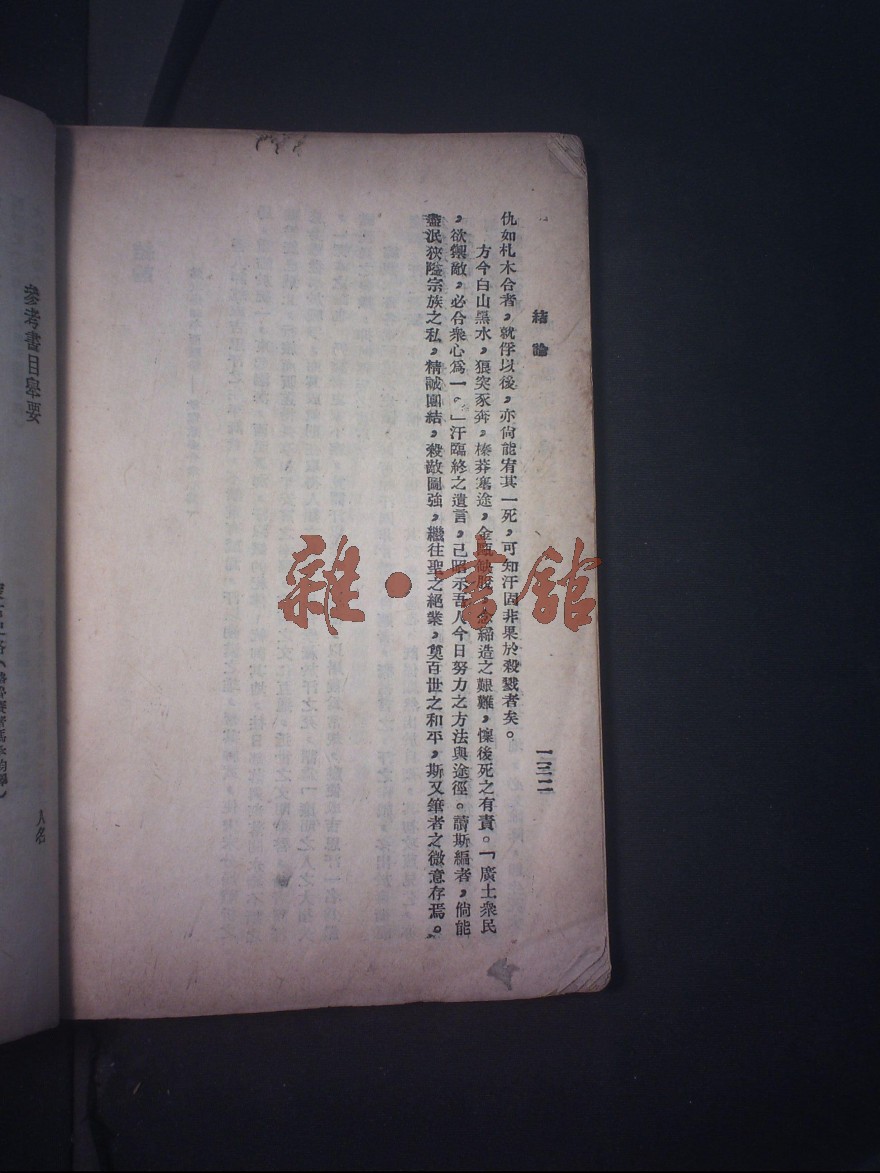 結論
一三二
仇如札木合者，就俘以後，亦尙能宥其一死，可知汗固非果於殺戮者矣。
方今白山黑水，狼突豕奔，榛莽塞途，金甌缺脫，念締造之艱難，懍後死之有責。「廣土衆民
，欲禦敵，必合衆心爲一。」汗臨終之遺言，已昭示吾人今日努力之方法與途徑。讀斯編者，倘能
盡泯狹隘宗族之私，精誠團結，殺敵圖強，繼往聖之絕業，奠百世之和平，斯又筆者之微意存焉。
雜·書館
參考書目舉要
人名